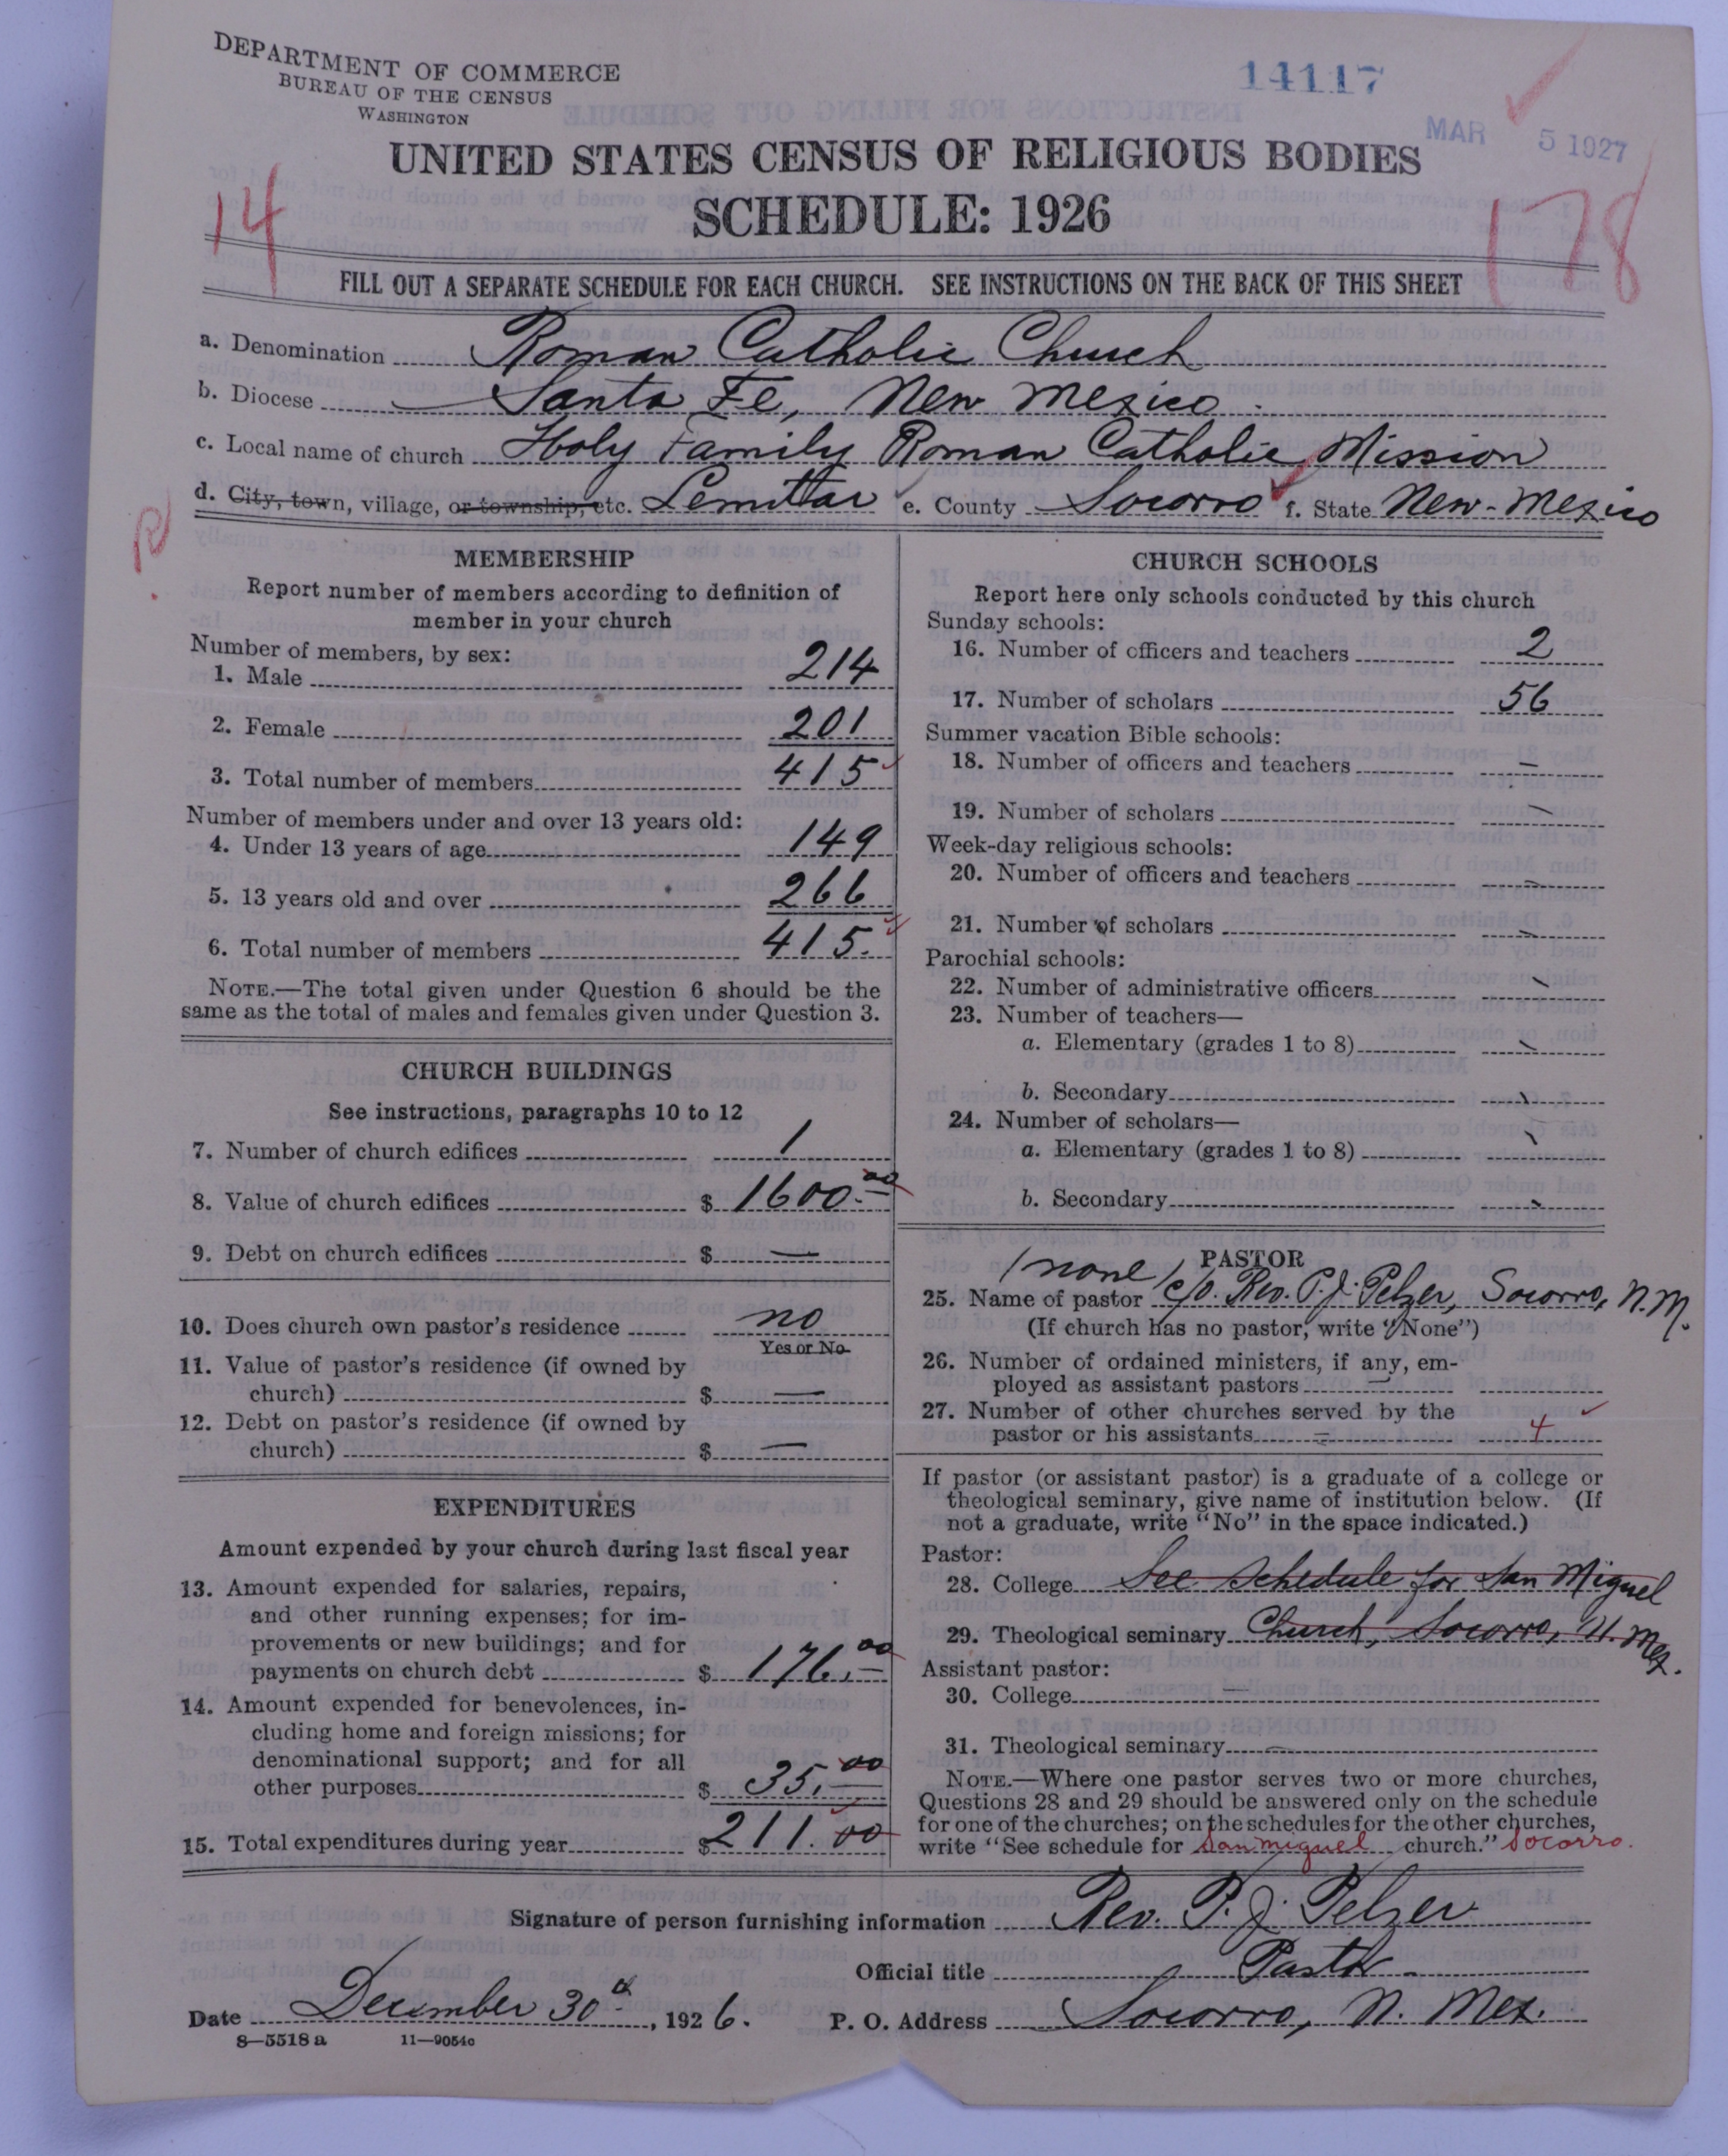 DEPARTMENT OF COMMERCE
BUREAU OF THE CENSUS
WASHINGTON
14117
MAR 5 1927
UNITED STATES CENSUS OF RELIGIOUS BODIES
SCHEDULE: 1926
14
178
FILL OUT A SEPARATE SCHEDULE FOR EACH CHURCH. SEE INSTRUCTIONS ON THE BACK OF THIS SHEET
a. Denomination Roman Catholic Church
b. Diocese Santa Fe, New Mexico
c. Local name of church Holy Family Roman Catholic Mission
d. City, town, village, or township, etc. Lemitar e. County Socorro f. State New-Mexico
R
MEMBERSHIP
Report number of members according to definition of
member in your church
Number of members, by sex:
1. Male 214
2. Female 201
3. Total number of members 415
Number of members under and over 13 years old:
4. Under 13 years of age 149
5. 13 years old and over 266
6. Total number of members 415.
NOTE.—The total given under Question 6 should be the
same as the total of males and females given under Question 3.
CHURCH BUILDINGS
See instructions, paragraphs 10 to 12
7. Number of church edifices 1
8. Value of church edifices $ 1600.00
9. Debt on church edifices $ —
10. Does church own pastor's residence no
Yes or No
11. Value of pastor's residence (if owned by
church) $ —
12. Debt on pastor's residence (if owned by
church) $ —
EXPENDITURES
Amount expended by your church during last fiscal year
13. Amount expended for salaries, repairs,
and other running expenses; for im-
provements or new buildings; and for
payments on church debt $ 176.00
14. Amount expended for benevolences, in-
cluding home and foreign missions; for
denominational support; and for all
other purposes $ 35.00
15. Total expenditures during year $ 211.00
CHURCH SCHOOLS
Report here only schools conducted by this church
Sunday schools:
16. Number of officers and teachers 2
17. Number of scholars 56
Summer vacation Bible schools:
18. Number of officers and teachers —
19. Number of scholars —
Week-day religious schools:
20. Number of officers and teachers —
21. Number of scholars —
Parochial schools:
22. Number of administrative officers —
23. Number of teachers—
a. Elementary (grades 1 to 8) —
b. Secondary —
24. Number of scholars—
a. Elementary (grades 1 to 8) —
b. Secondary —
PASTOR
none
25. Name of pastor c/o. Rev. P. J. Pelzer, Socorro, N.M.
(If church has no pastor, write "None")
26. Number of ordained ministers, if any, em-
ployed as assistant pastors —
27. Number of other churches served by the
pastor or his assistants — 4
If pastor (or assistant pastor) is a graduate of a college or
theological seminary, give name of institution below. (If
not a graduate, write "No" in the space indicated.)
Pastor:
28. College See schedule for San Miguel
29. Theological seminary Church, Socorro, N. Mex.
Assistant pastor:
30. College —
31. Theological seminary —
NOTE.—Where one pastor serves two or more churches,
Questions 28 and 29 should be answered only on the schedule
for one of the churches; on the schedules for the other churches,
write "See schedule for San Miguel church." Socorro.
Signature of person furnishing information Rev. P. J. Pelzer
Official title Pastor
Date December 30th, 1926. P. O. Address Socorro, N. Mex.
8—5518 a 11—9054c